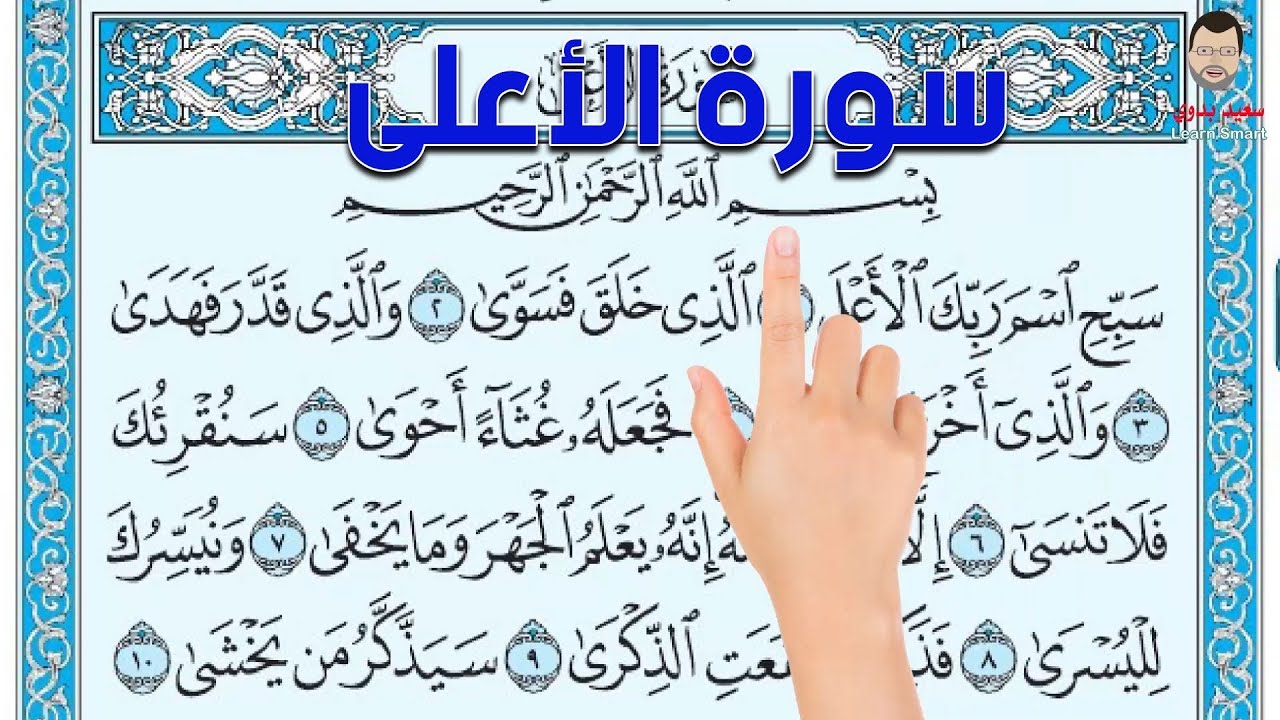 سورة الأعلى
سعيد بدوي
Learn Smart
بِسْمِ ٱللَّهِ ٱلرَّحْمَٰنِ ٱلرَّحِيمِ
سَبِّحِ ٱسْمَ رَبِّكَ ٱلْأَعْلَى ٱلَّذِى خَلَقَ فَسَوَّىٰ ٢ وَٱلَّذِى قَدَّرَ فَهَدَىٰ
٣ وَٱلَّذِىٓ فَجَعَلَهُۥ غُثَآءً أَحْوَىٰ ٥ سَنُقْرِئُكَ
فَلَا تَنسَىٰٓ ٦ إِنَّهُۥ يَعْلَمُ ٱلْجَهْرَ وَمَا يَخْفَىٰ ٧ وَنُيَسِّرُكَ
لِلْيُسْرَىٰ ٨ ٱلذِّكْرَىٰ ٩ سَيَذَّكَّرُ مَن يَخْشَىٰ ١٠